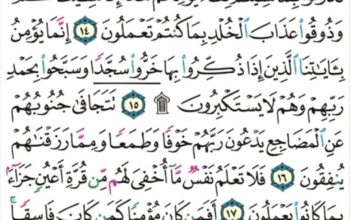 وَذُوقُوا۟ عَذَابَ ٱلْخُلْدِ بِمَا كُنتُمْ تَعْمَلُونَ ١٤ إِنَّمَا يُؤْمِنُ
بِـَٔايَـٰتِنَا ٱلَّذِينَ إِذَا ذُكِّرُوا۟ بِهَا خَرُّوا۟ سُجَّدًا وَسَبَّحُوا۟ بِحَمْدِ
رَبِّهِمْ وَهُمْ لَا يَسْتَكْبِرُونَ ۩ ١٥ تَتَجَافَىٰ جُنُوبُهُمْ
عَنِ ٱلْمَضَاجِعِ يَدْعُونَ رَبَّهُمْ خَوْفًا وَطَمَعًا وَمِمَّا رَزَقْنَـٰهُمْ
يُنفِقُونَ ١٦ فَلَا تَعْلَمُ نَفْسٌ مَّآ أُخْفِىَ لَهُم مِّن قُرَّةِ أَعْيُنٍ جَزَآءًۢ
بِمَا كَانُوا۟ يَعْمَلُونَ ١٧ أَفَمَن كَانَ مُؤْمِنًا كَمَن كَانَ فَاسِقًا ۚ